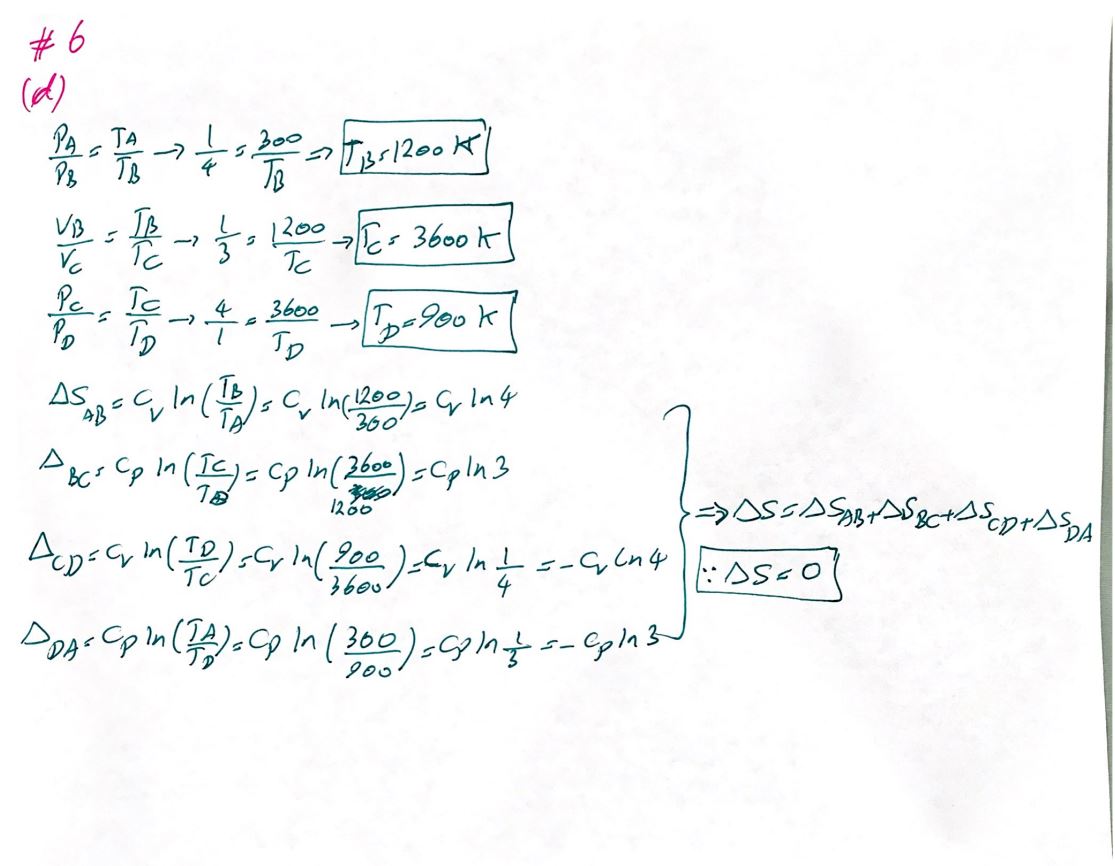 #6
(d)
P_A/P_B = T_A/T_B → 1/4 = 300/T_B ⇒ T_B = 1200 K
V_B/V_C = T_B/T_C → 1/3 = 1200/T_C → T_C = 3600 K
P_C/P_D = T_C/T_D → 4/1 = 3600/T_D → T_D = 900 K
ΔS_AB = C_v ln(T_B/T_A) = C_v ln(1200/300) = C_v ln 4
Δ_BC = C_p ln(T_C/T_B) = C_p ln(3600/1200) = C_p ln 3
⇒ ΔS = ΔS_AB + ΔS_BC + ΔS_CD + ΔS_DA
Δ_CD = C_v ln(T_D/T_C) = C_v ln(900/3600) = C_v ln 1/4 = - C_v ln 4
∵ ΔS = 0
Δ_DA = C_p ln(T_A/T_D) = C_p ln(300/900) = C_p ln 1/3 = - C_p ln 3